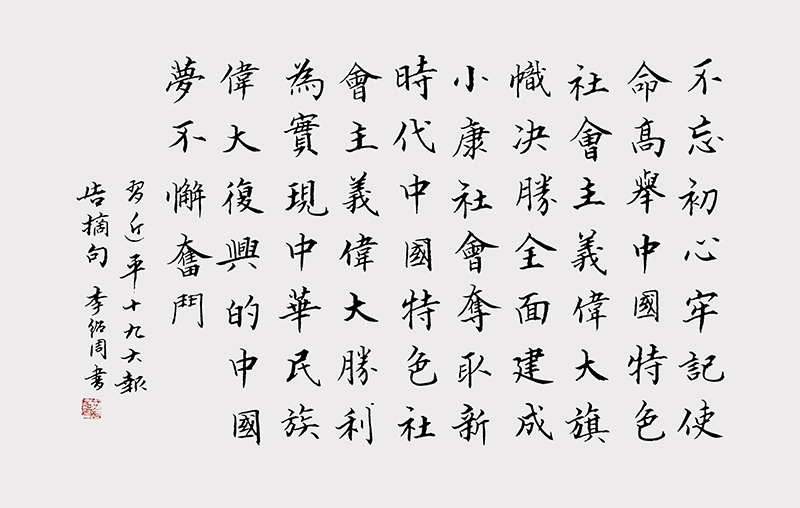 不忘初心牢記使
命高舉中國特色
社會主義偉大旗
幟决勝全面建成
小康社會奪取新
時代中國特色社
會主義偉大勝利
為實現中華民族
偉大復興的中國
夢不懈奮鬥
習近平十九大報
告摘句 李紹周書